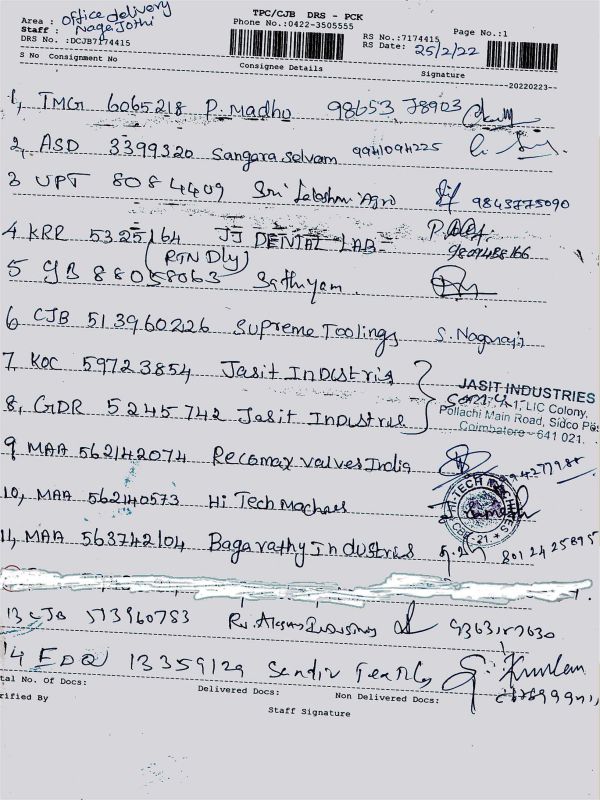 TPC/CJB DRS - PCK
Area : Office delivery
Phone No.:0422-3505555
Staff : NageJothi
RS No.:7174415
Page No.:1
DRS No. :DCJB7174415
RS Date: 25/2/22
S No Consignment No Consignee Details Signature
20220223
1, TMG 6065218 P. Madhu 98653 78903
2, ASD 3399320 Sangara selvam 9941094225
3 UPT 8084409 Sri Lakshmi Agro 9843775090
4 KRR 5325164 JJ DENTAL LAB
(RTN Dly) 9809488166
5 88058063 Sathiyam
6 CJB 513960226 Supreme Toolings S. Nagaraj
7, KOC 59723854 Jasit Industris
JASIT INDUSTRIES
LIC Colony,
8, GDR 5245742 Jasit Industries
Pollachi Main Road, Sidco
Coimbatore - 641 021.
9 MAA 562142074 Recomax valves India
10, MAA 562140573 Hi Tech Machines
HI-TECH MACHINES
CBE-21
11, MAA 563742104 Bagavathy Industries 8012425895
13 CJB 513960783
14 EDQ 13359129
tal No. Of Docs: Delivered Docs: Non Delivered Docs:
rified By
Staff Signature